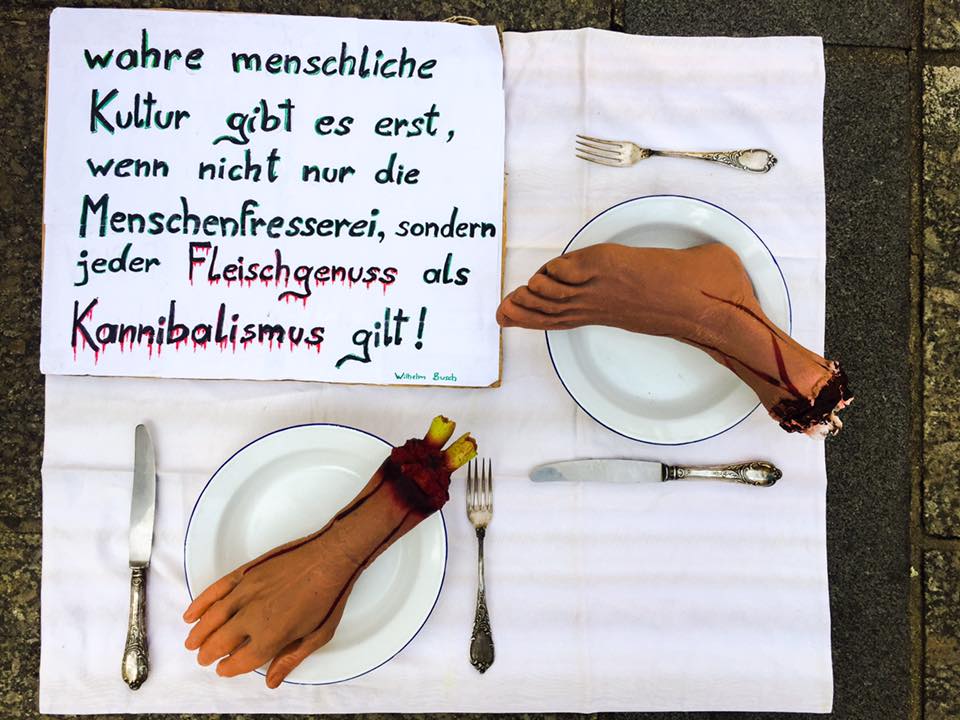 wahre menschliche
Kultur gibt es erst,
wenn nicht nur die
Menschenfresserei, sondern
jeder Fleischgenuss als
Kannibalismus gilt!
Wilhelm Busch